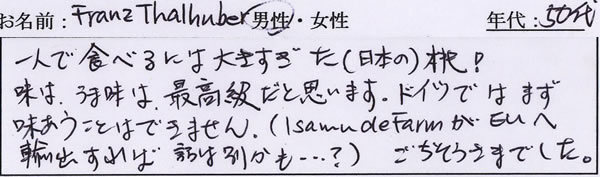 お名前：Franz Thalhuber 男性・女性 年代：50代
一人で食べるには大きすぎた(日本の)桃!
味は、うま味は、最高級だと思います。ドイツではまず
味あうことはできません。(Isamu de FarmがEUへ
輸出すれば 話は別かも…?) ごちそうさまでした。